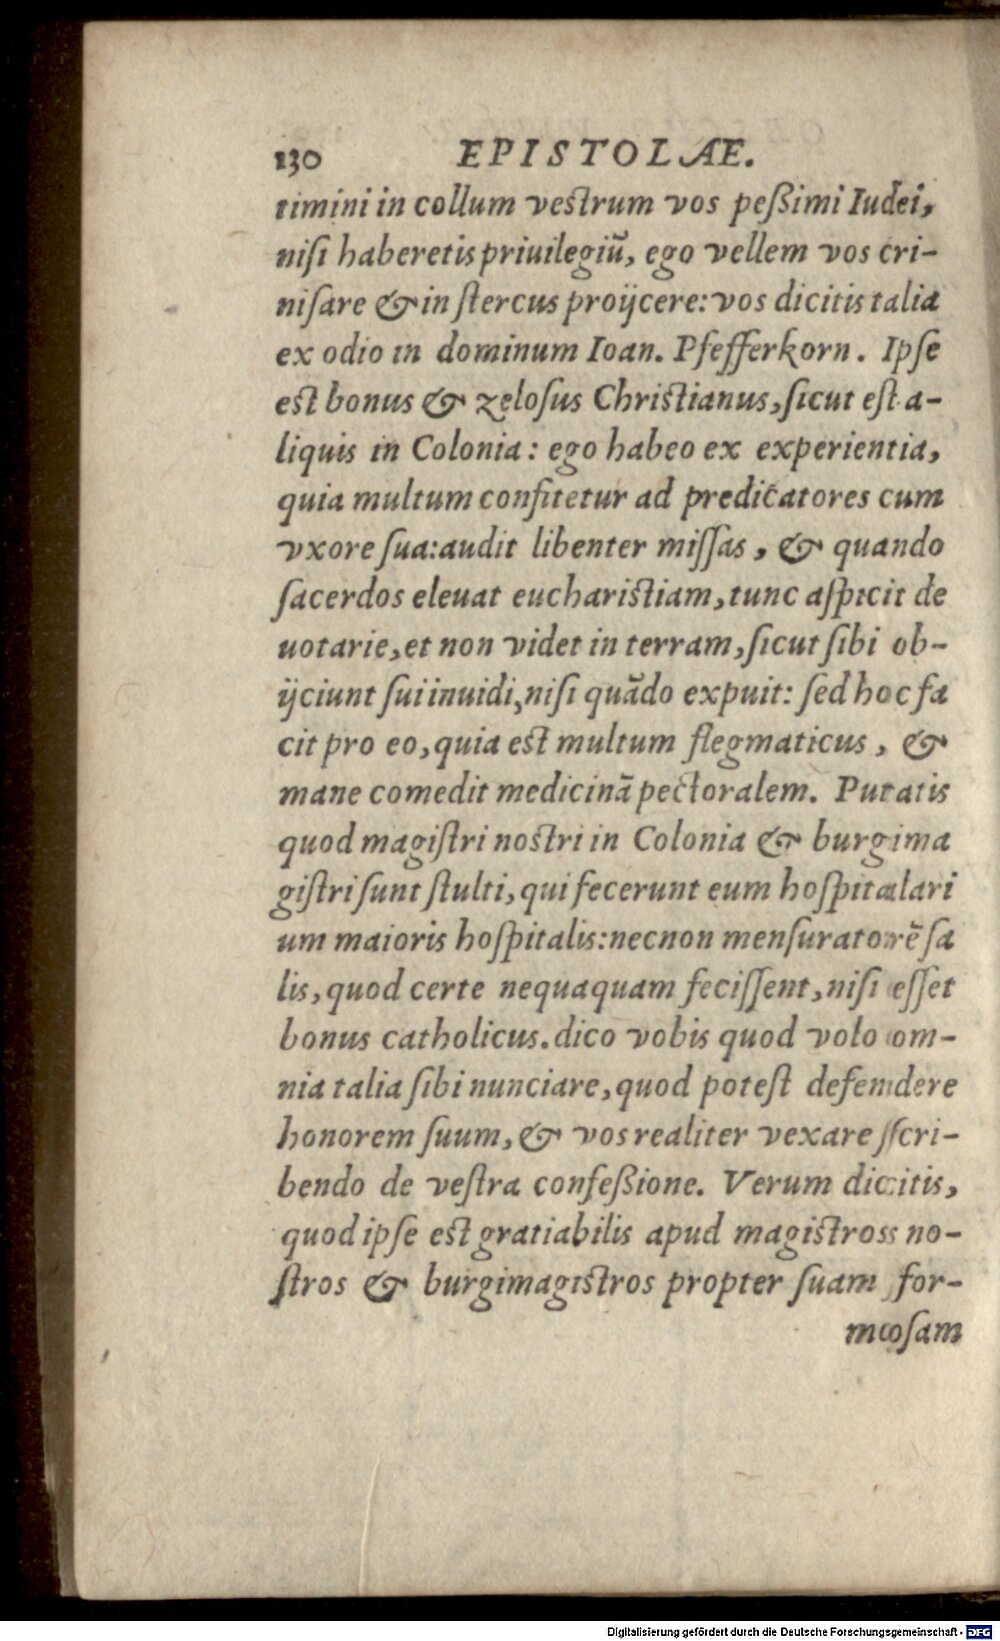 130 EPISTOLAE.
timini in collum vestrum vos peßimi Iudei,
nisi haberetis priuilegiũ, ego vellem vos cri-
nisare & in stercus proijcere: vos dicitis talia
ex odio in dominum Ioan. Pfefferkorn. Ipse
est bonus & zelosus Christianus, sicut est a-
liquis in Colonia: ego habeo ex experientia,
quia multum confitetur ad predicatores cum
vxore sua: audit libenter missas, & quando
sacerdos eleuat eucharistiam, tunc aspicit de
uotarie, et non videt in terram, sicut sibi ob-
ijciunt sui inuidi, nisi quãdo expuit: sed hoc fa
cit pro eo, quia est multum flegmaticus, &
mane comedit medicinã pectoralem. Putatis
quod magistri nostri in Colonia & burgima
gistri sunt stulti, qui fecerunt eum hospitalari
um maioris hospitalis: necnon mensuratorẽ sa
lis, quod certe nequaquam fecissent, nisi esset
bonus catholicus. dico vobis quod volo om-
nia talia sibi nunciare, quod potest defendere
honorem suum, & vos realiter vexare scri-
bendo de vestra confeßione. Verum dicitis,
quod ipse est gratiabilis apud magistros no-
stros & burgimagistros propter suam for-
mosam
Digitalisierung gefördert durch die Deutsche Forschungsgemeinschaft - DFG